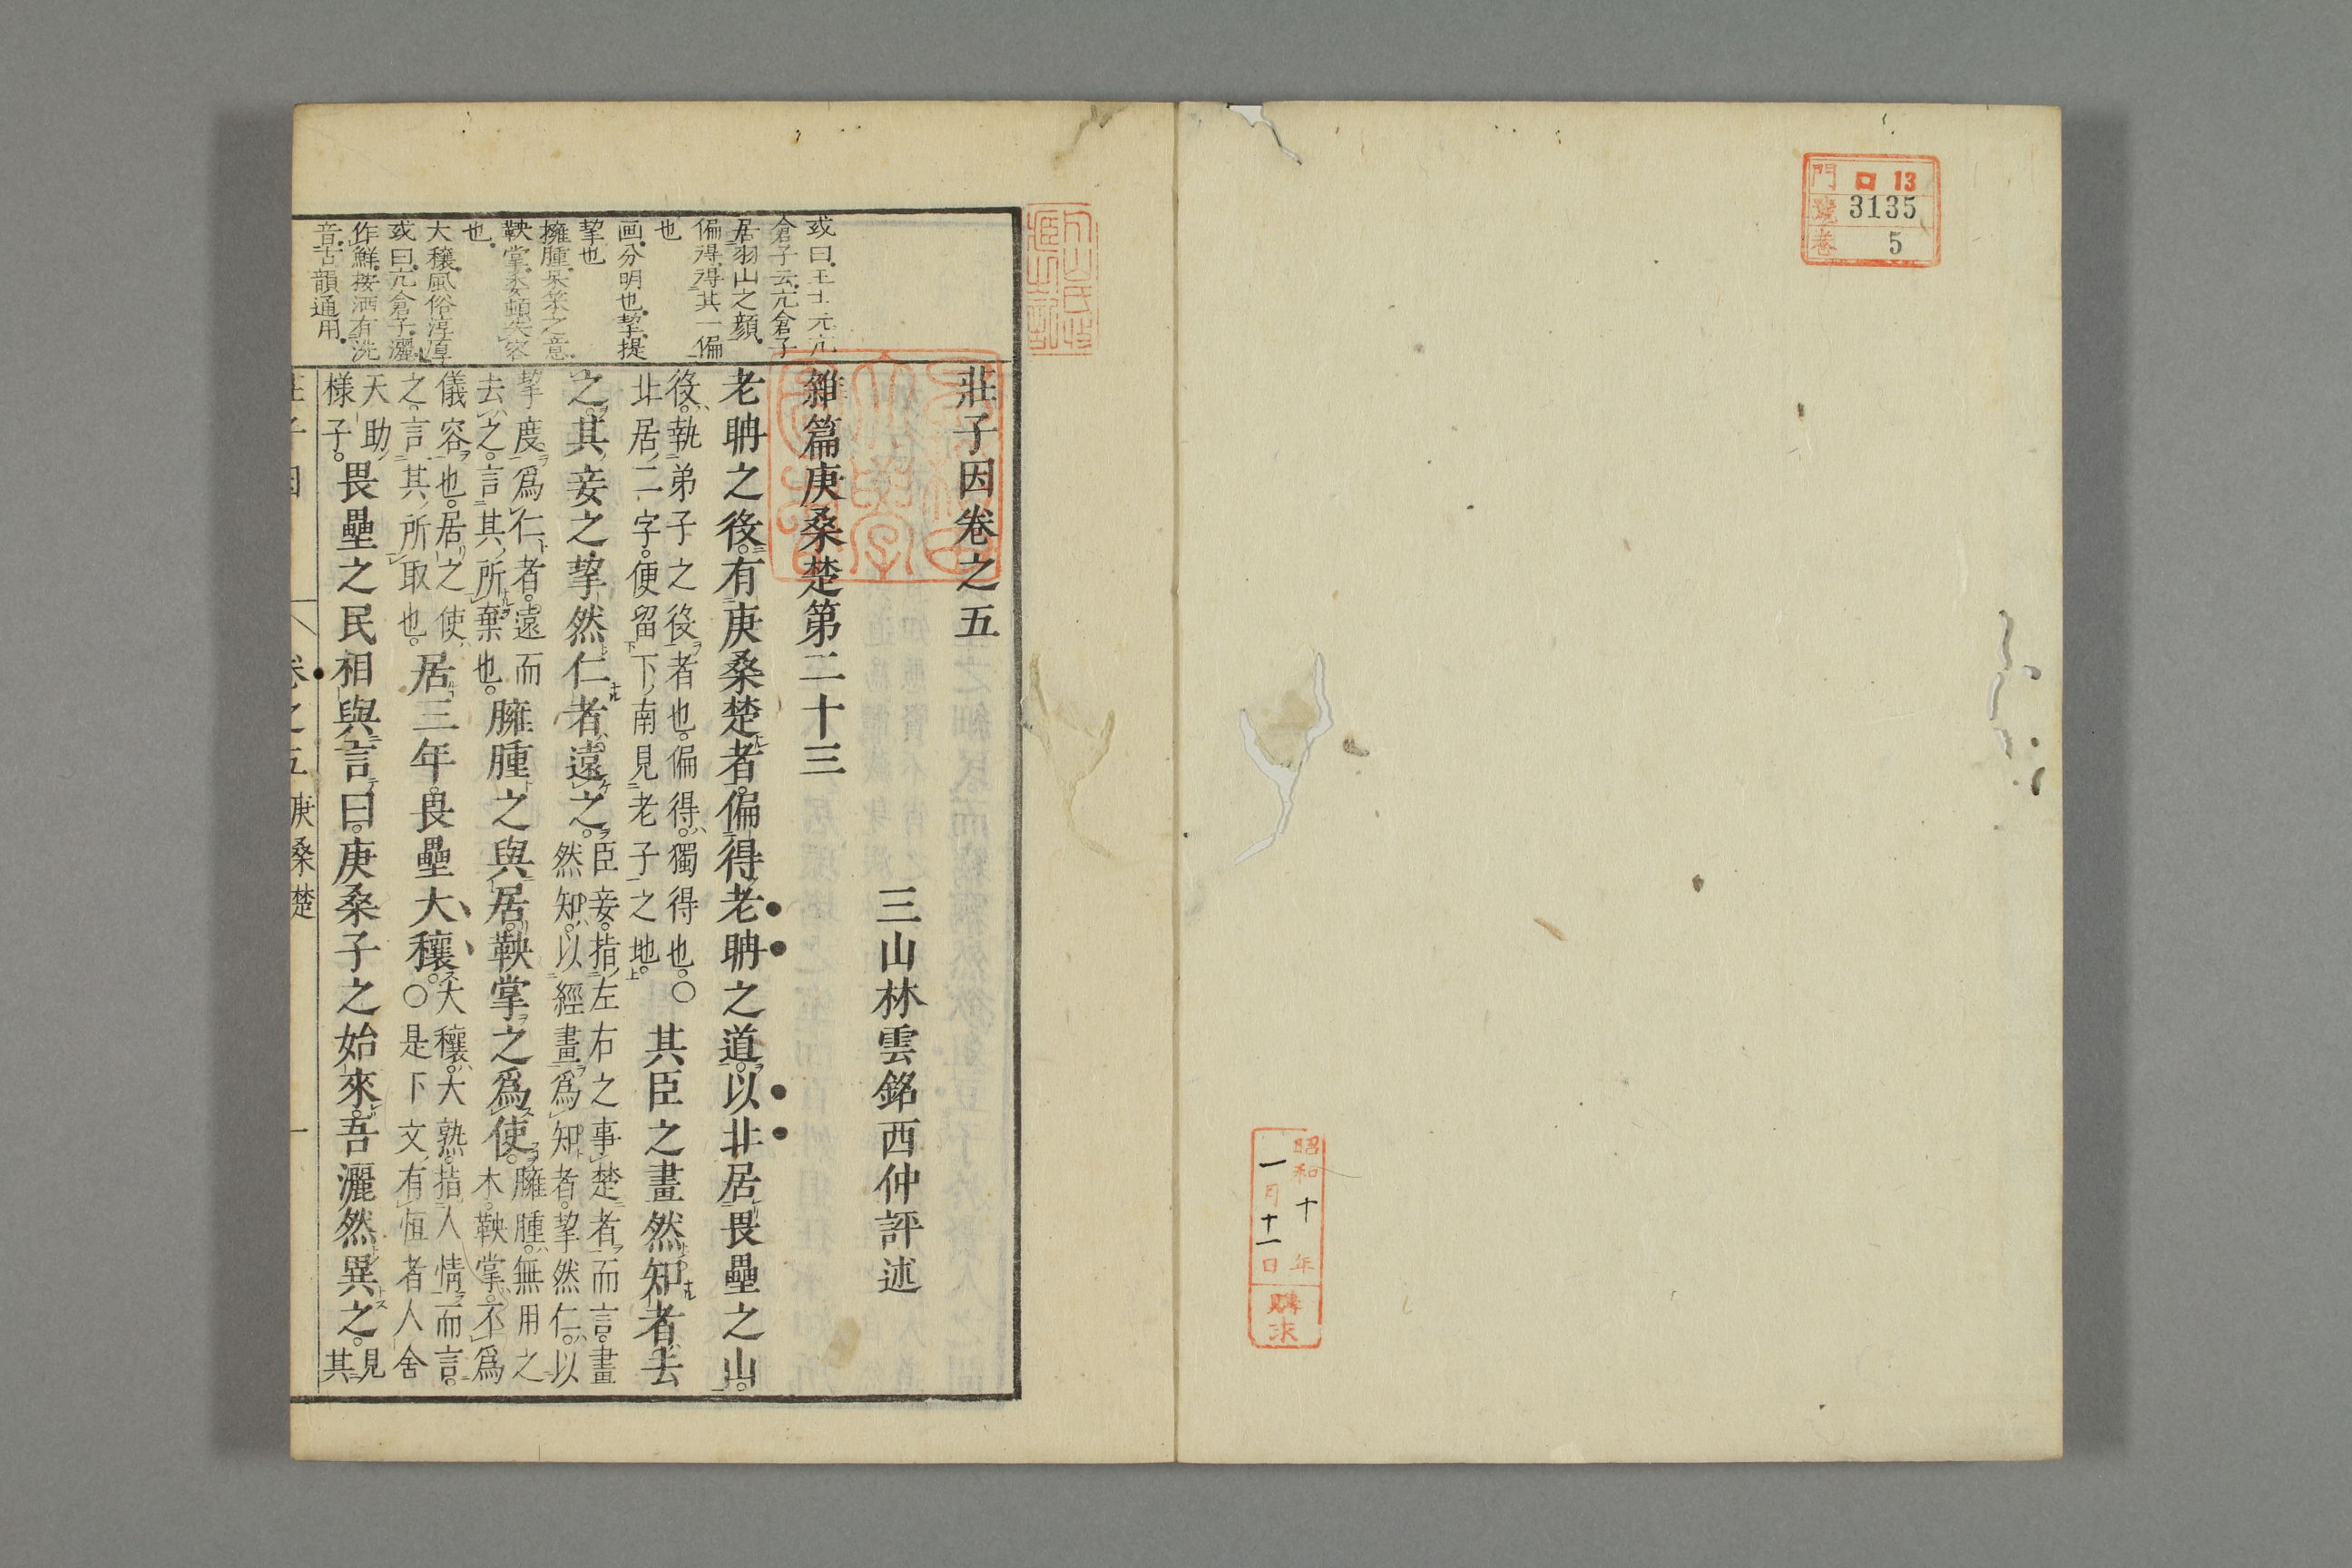 門 ロ 13
號 3135
卷 5
昭和十年
一月十一日
購求
莊子因卷之五
三山林雲銘西仲評述
雜篇庚桑楚第二十三
老聃之役。有庚桑楚者。偏得老聃之道。以北居畏壘之山。
役。執弟子之役者也。偏得。獨得也。〇
北居二字。便留下南見老子之地。
其臣之畫然知者去
之。其妾之挈然仁者遠之。
臣妾。指左右之事楚者而言。畫
然知。以經畫爲知者。挈然仁。以
挈度爲仁者。遠而
去之。言其所棄也。
臃腫之與居。鞅掌之爲使。
臃腫。無用之
木。鞅掌。不爲
儀容也。居之使
之。言其所取也。
居三年。畏壘大穰。
大穰。大熟。指人情而言。
〇是下文有恒者人舍
天助
樣子。
畏壘之民相與言曰。庚桑子之始來。吾灑然異之。
見
其
卷之五 庚桑楚 一
或曰。王士元亢
倉子云。亢倉子
居羽山之顏。
偏得。得其一偏
也
画。分明也。挈。提
挈也
擁腫。呆笨之意。
鞅掌。委頓失容
也。
大穰。風俗淳厚
或曰。亢倉子。灑
作鮮。按洒有洗
音。古韻通用。